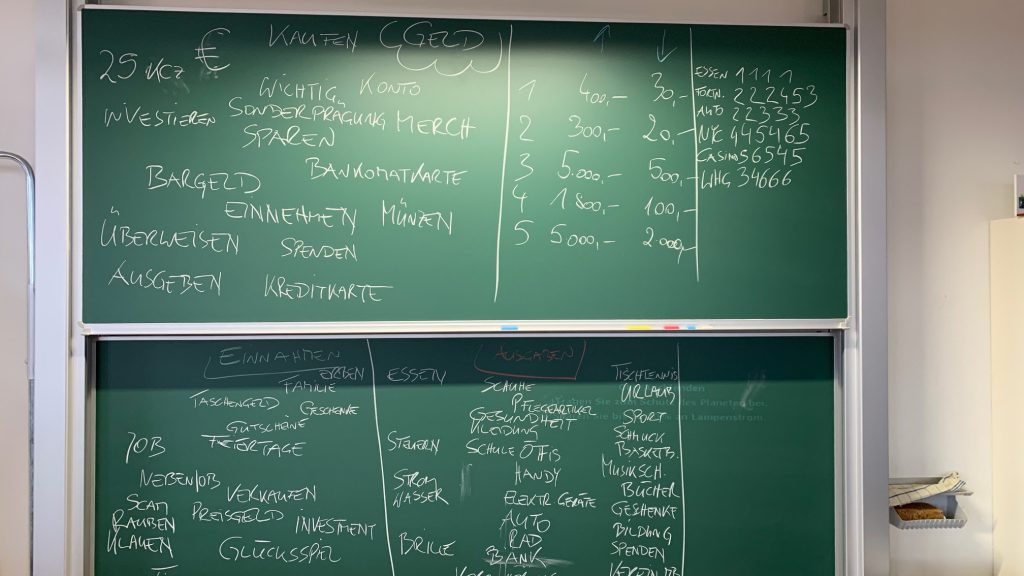 € KAUFEN GELD
25
WICHTIG KONTO
INVESTIEREN SONDERPRÄGUNG MERCH
SPAREN
BARGELD BANKOMATKARTE
EINNEHMEN MÜNZEN
ÜBERWEISEN SPENDEN
AUSGEBEN KREDITKARTE
↑ ↓
1 400,- 30,-
2 300,- 20,-
3 5.000,- 500,-
4 1800,- 100,-
5 5000,- 2000,-
ESSEN 1111
FORTN. 222453
AUTO 22333
445465
CASINO 56545
WHG 34666
EINNAHMEN
ERBEN
FAMILIE
TASCHENGELD GESCHENKE
GUTSCHEINE
JOB FEIERTAGE
NEBENJOB
VERKAUFEN
SCAM
RAUBEN PREISGELD INVESTMENT
KLAUEN
GLÜCKSSPIEL
AUSGABEN
ESSEN
STEUERN
STROM
WASSER
BRILLE
SCHUHE
PFLEGEARTIKEL
GESUNDHEIT
KLEIDUNG
SCHULE ÖFFIS
HANDY
ELEKTR GERÄTE
AUTO
RAD
BANK
TISCHTENNIS
URLAUB
SPORT
SCHMUCK
BASKETB.
MUSIKSCH.
BÜCHER
GESCHENKE
BILDUNG
SPENDEN